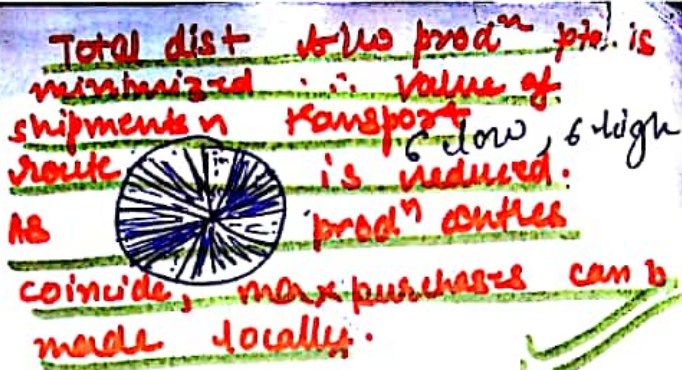 Total dist b/w prodⁿ pts. is
minimized ∴ value of
shipments n transport
6 low, 6 high
route is reduced.
As prodⁿ centres
coincide, max purchases can b
made locally.